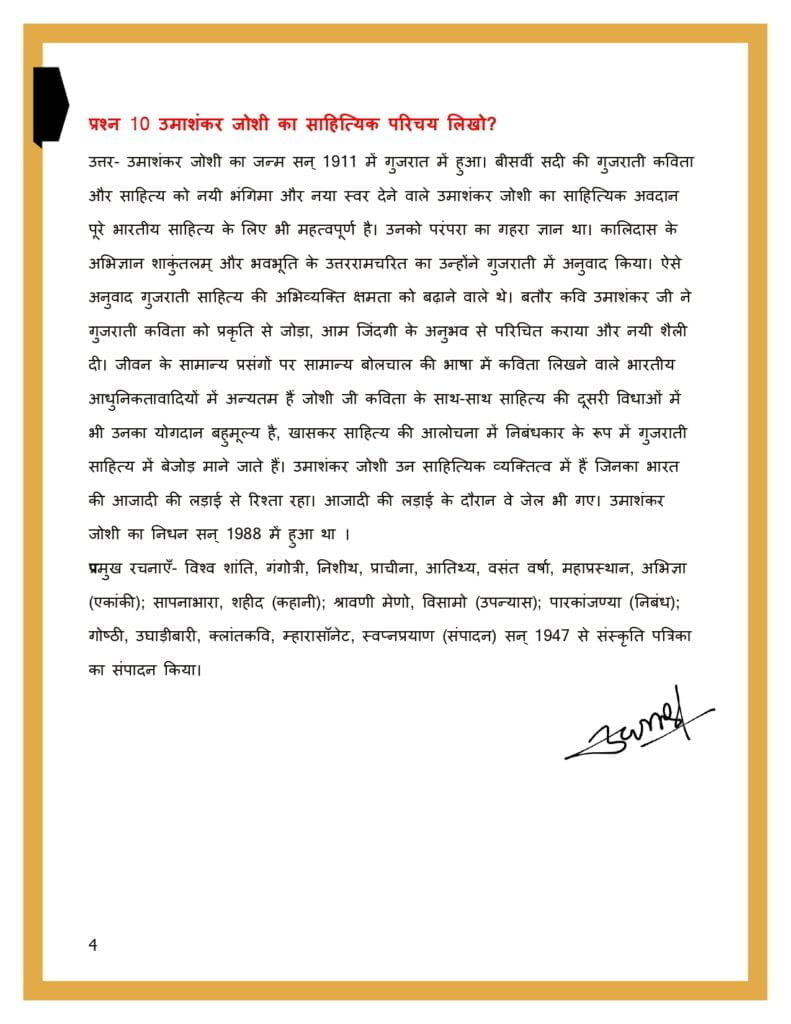 प्रश्न 10 उमाशंकर जोशी का साहित्यिक परिचय लिखो?
उत्तर- उमाशंकर जोशी का जन्म सन् 1911 में गुजरात में हुआ। बीसवीं सदी की गुजराती कविता
और साहित्य को नयी भंगिमा और नया स्वर देने वाले उमाशंकर जोशी का साहित्यिक अवदान
पूरे भारतीय साहित्य के लिए भी महत्वपूर्ण है। उनको परंपरा का गहरा ज्ञान था। कालिदास के
अभिज्ञान शाकुंतलम् और भवभूति के उत्तररामचरित का उन्होंने गुजराती में अनुवाद किया। ऐसे
अनुवाद गुजराती साहित्य की अभिव्यक्ति क्षमता को बढ़ाने वाले थे। बतौर कवि उमाशंकर जी ने
गुजराती कविता को प्रकृति से जोड़ा, आम जिंदगी के अनुभव से परिचित कराया और नयी शैली
दी। जीवन के सामान्य प्रसंगों पर सामान्य बोलचाल की भाषा में कविता लिखने वाले भारतीय
आधुनिकतावादियों में अन्यतम हैं जोशी जी कविता के साथ-साथ साहित्य की दूसरी विधाओं में
भी उनका योगदान बहुमूल्य है, खासकर साहित्य की आलोचना में निबंधकार के रूप में गुजराती
साहित्य में बेजोड़ माने जाते हैं। उमाशंकर जोशी उन साहित्यिक व्यक्तित्व में हैं जिनका भारत
की आजादी की लड़ाई से रिश्ता रहा। आजादी की लड़ाई के दौरान वे जेल भी गए। उमाशंकर
जोशी का निधन सन् 1988 में हुआ था ।
प्रमुख रचनाएँ- विश्व शांति, गंगोत्री, निशीथ, प्राचीना, आतिथ्य, वसंत वर्षा, महाप्रस्थान, अभिज्ञा
(एकांकी); सापनाभारा, शहीद (कहानी); श्रावणी मेणो, विसामो (उपन्यास); पारकांजण्या (निबंध);
गोष्ठी, उघाड़ीबारी, क्लांतकवि, म्हारासॉनेट, स्वप्नप्रयाण (संपादन) सन् 1947 से संस्कृति पत्रिका
का संपादन किया।
4